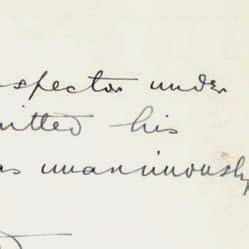 spector under
itted his
as unanimously